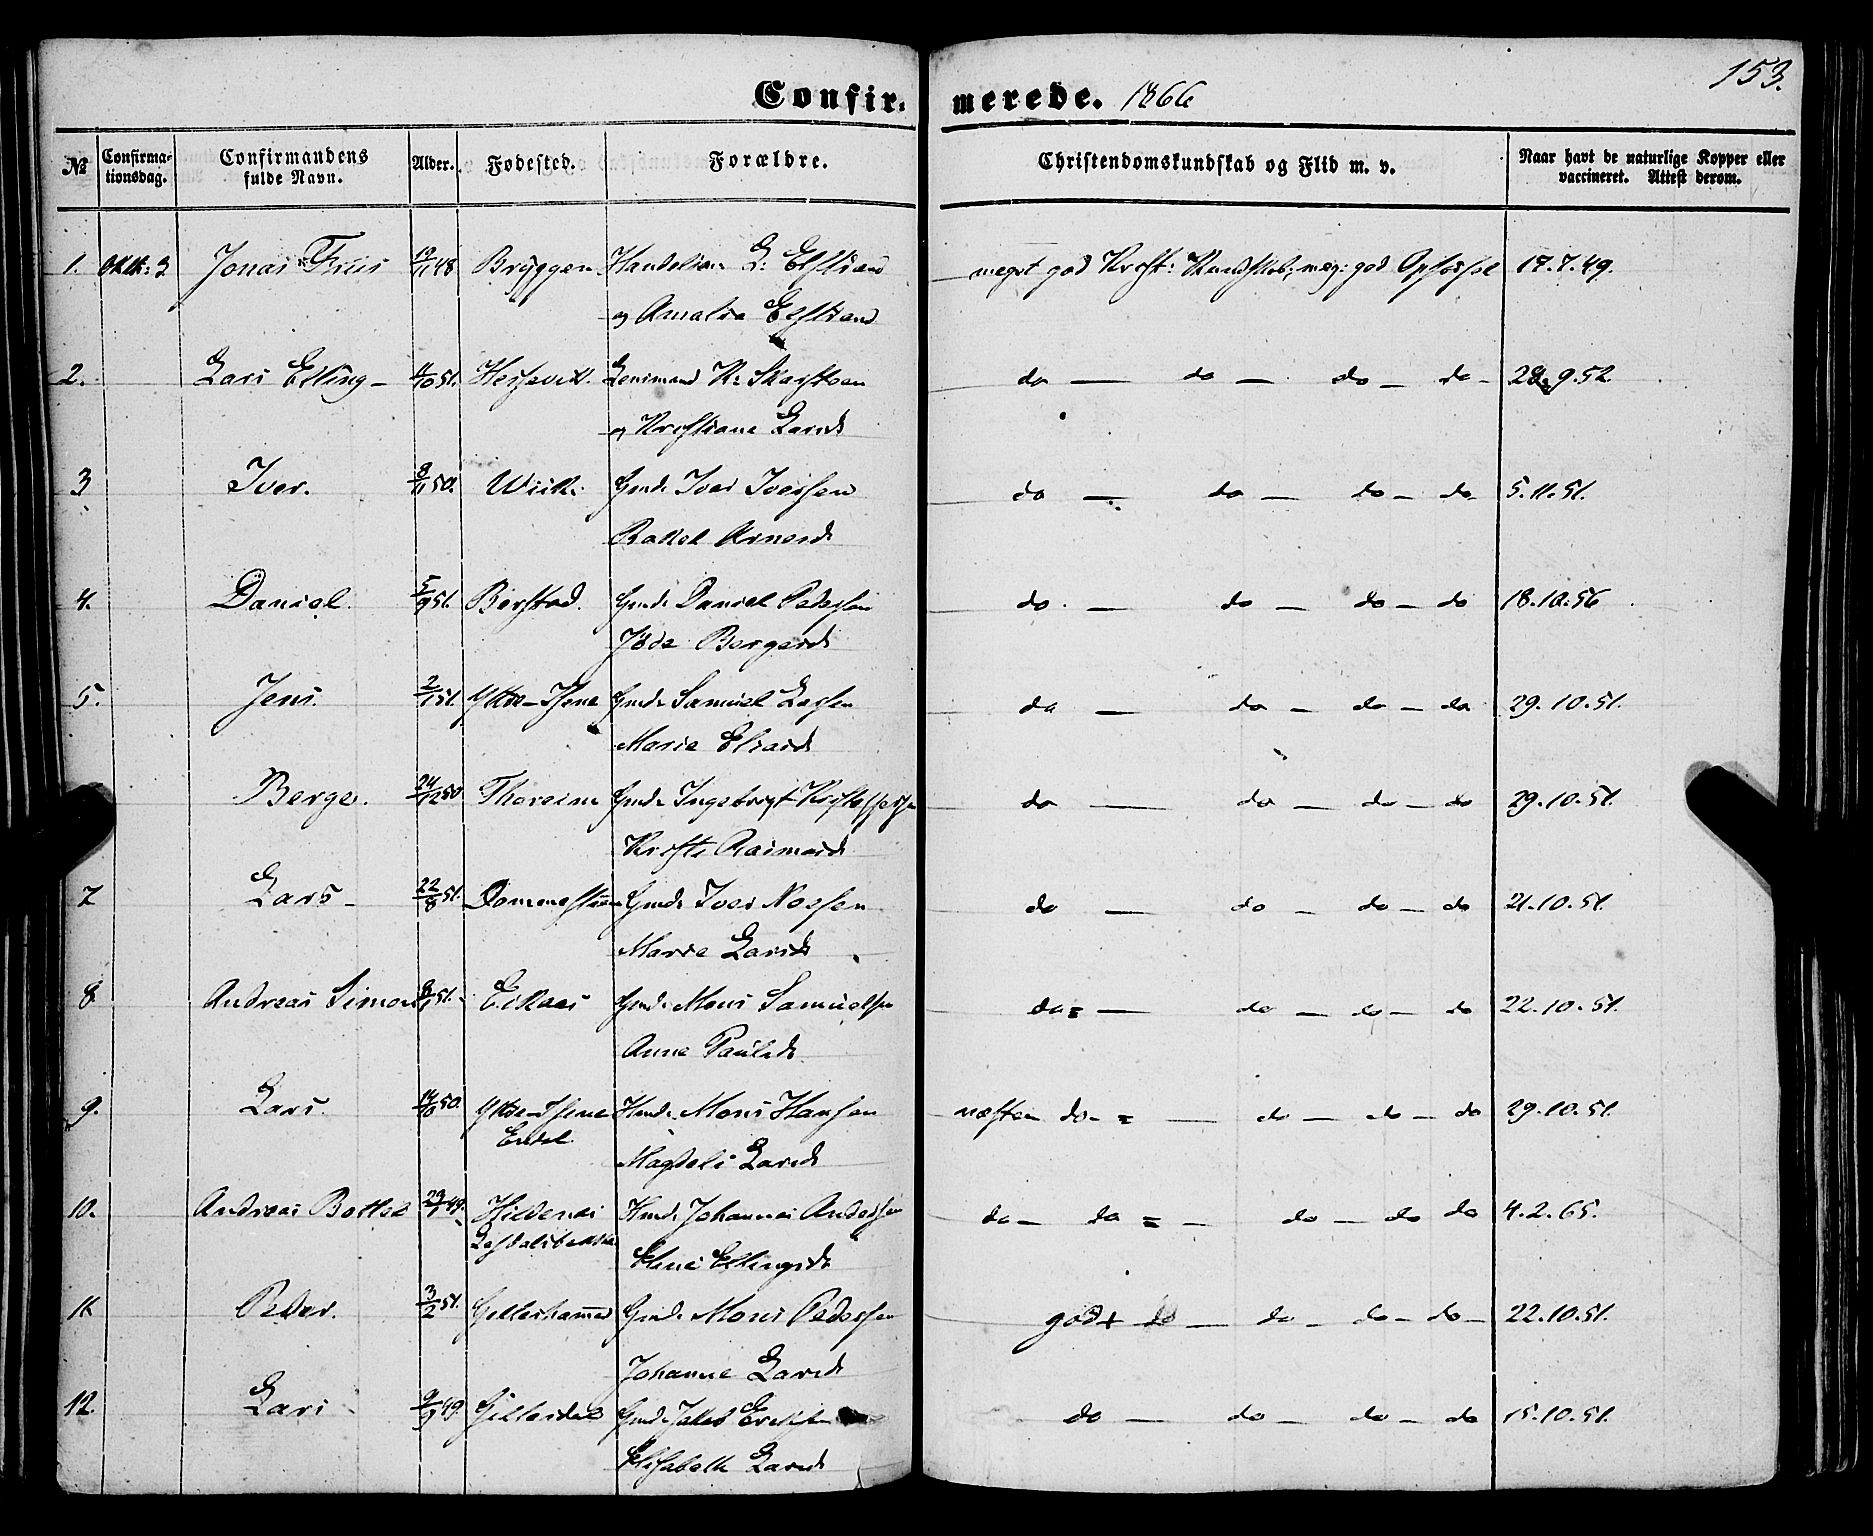 153.
Confir- merede. 1866
№ Confirma- tionsdag. Confirmandens fulde Navn. Alder. Fødested. Forældre. Christendomskundskab og Flid m. v. Naar havt de naturlige Kopper eller vaccineret. Attest derom.
1. Oktb: 3 Jonas Friis 19/11 48 Bryggen Handelsm L: Elfstrand meget god Krist: Kundskab; meg: god Opførsel 17.7.49.
og Amalia Elfstrand
2. Lars Elling - 11/10 51. Hessevik. Lensmand R: Skarsteen do — do — do — do - 28.9.52.
og Kristiane Larsd
3 Iver. 8/11 50. Wiik. Gmd. Iver Iversen do — do — do — do 5.11.51.
Rakel Arnesd
4. Daniel. 5/9 51. Berstad. Gmd. Daniel Pedersen do. — do — do — do 18.10.56
Jöde Bergersd
5. Jens. 2/1 51. Ytre-Hene Gmd. Samuel Larsen do — do — do — do 29.10.51.
Marie Eliasd
Berge. 24/12 50 Thoreim Gmd. Ingebrigt Kristoffersen do — do — do — do 29.10.51.
Kristi Rasmusd
7 Lars - 22/8 51. Dommesteen Gmd. Iver Nossen do — do — do — do 21.10.51.
Marie Larsd
8 Andreas Simon 51. Eikaas Gmd. Mons Samuelsen do = — do — do — do 22.10.51.
Anne Paulsd
9. Lars. 14/10 50. Ytre-Hene Hmd. Mons Hansen næsten do = — do — do — do 29.10.51.
Eidet
Magdeli Larsd
10. Andreas Bottol 29/7 49. Hildenes Hmd. Johannes Andersen do — do = — do — do do 4.2.65.
Lefdalsbakken
Eline Ellingsd
11 Peder. 3/2 51. Gilleshammer Gmd. Mons Pedersen godt do — do — do — do — 22.10.51.
Johanne Larsd
12. Lars 9/9 49 Gillesdal Gmd. Jakob Eriksen do — do — do — do 15.10.51.
Elisabeth Larsd